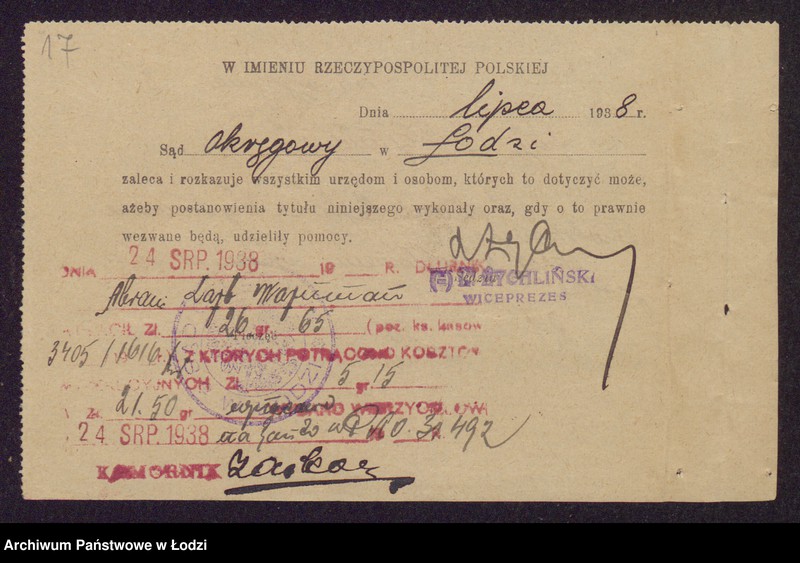 17
W IMIENIU RZECZYPOSPOLITEJ POLSKIEJ
Dnia lipca 1938 r.
Sąd okręgowy w Łodzi
zaleca i rozkazuje wszystkim urzędom i osobom, których to dotyczyć może,
ażeby postanowienia tytułu niniejszego wykonały oraz, gdy o to prawnie
wezwane będą, udzieliły pomocy.
DNIA 24 SRP. 1938 19 R. DŁUŻNIK
(-) RYCHLIŃSKI
WICEPREZES
Abram Lajb
ZŁ. 26 gr. 65 (poz. ks. kasow
3405/1616 Z KTÓRYCH POTRĄCONO KOSZTÓW
CYJNYCH ZŁ 5 15
ZŁ 21.50 gr
24 SRP. 1938 na 492
KOMORNIK
Archiwum Państwowe w Łodzi